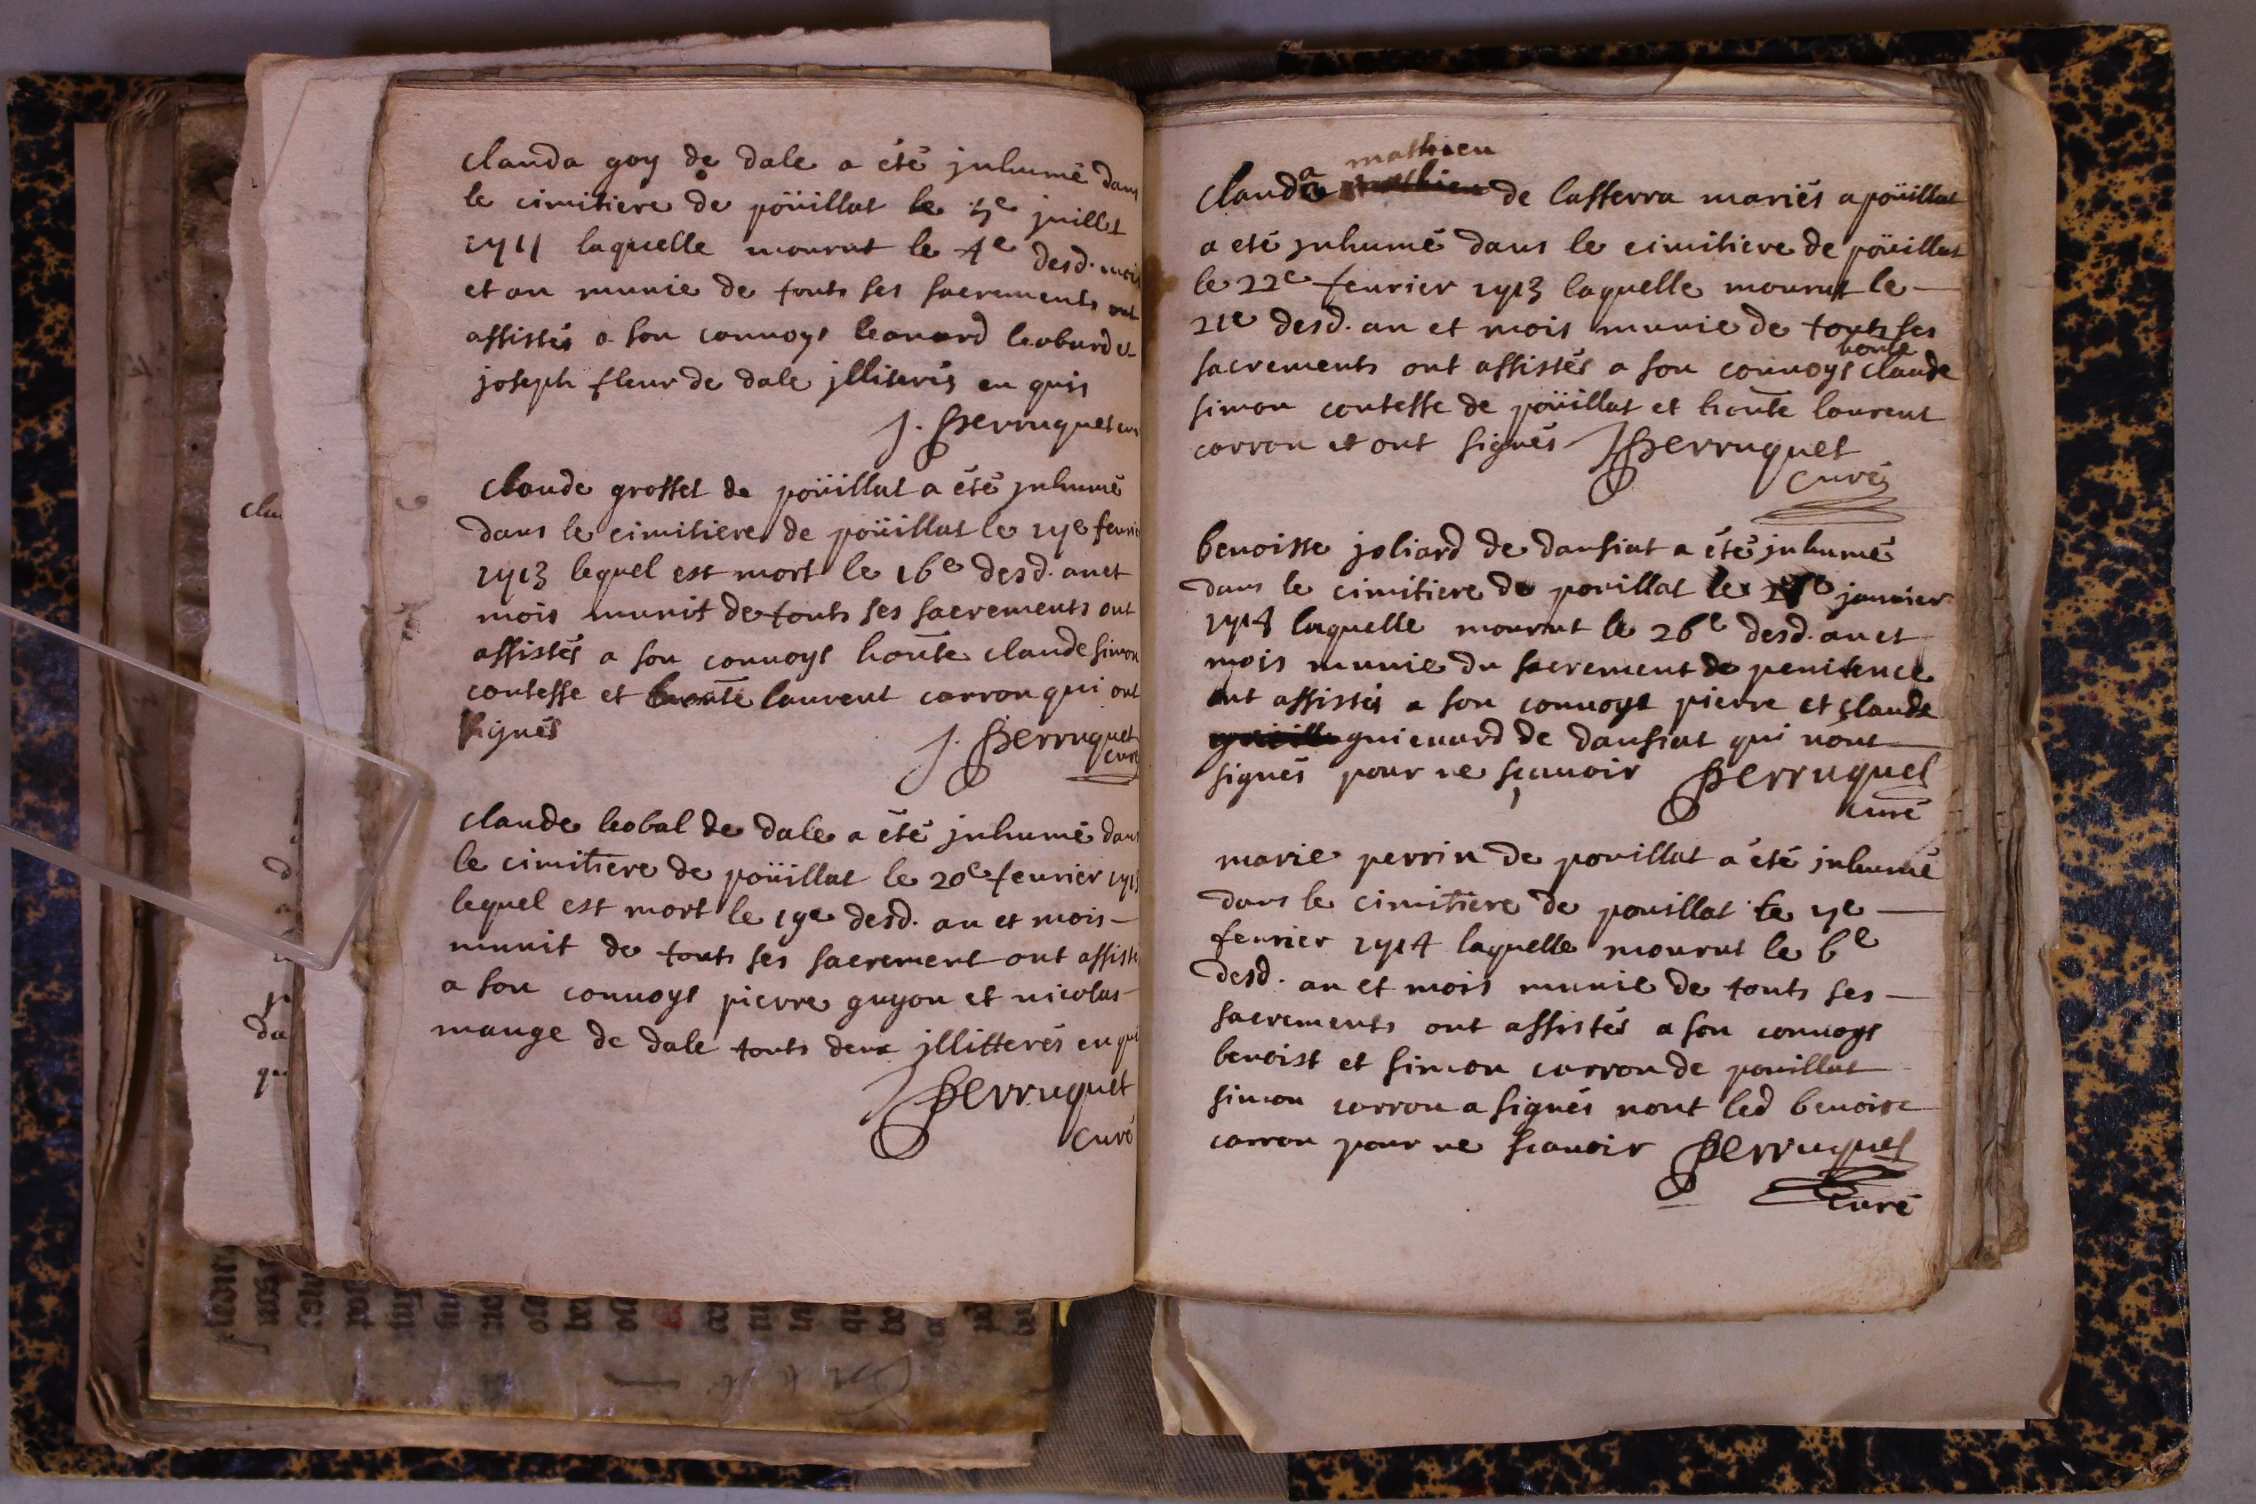 clauda goy de dale a été jnhumé dans
le cimitiere de poüillat le 5e juillet
1711 laquelle mourut le 4e desd. mois
et an munie de touts ses sacrements ont
assistés a son connoys leonard leobard et
joseph fleur de dale jlliterés en quis
J. Perruquet cur
claude grosset de poüillat a été jnhumé
dans le cimitiere de poüillat le 17e feurie
1713 lequel est mort le 16e desd. an et
mois munit de touts ses sacrements ont
assistés a son conuoys honte claude simon
contesse et honte laurent carron qui ont
signés
J. Perruquet
curé
claude leobal de dale a été jnhumé dans
le cimitiere de poüillat le 20e feurier 1713
lequel est mort le 19e desd. an et mois
munit de touts ses sacrement ont assisté
a son conuoys pierre guyon et nicolas
mange de dale touts deux jllitterés en qui
J Perruquet
curé
mathieu
clauda de lasserra mariés a poüillat
a eté jnhumé dans le cimitiere de poüillat
le 22e feurier 1713 laquelle mourut le
21e desd. an et mois munie de touts ses
honte
sacrements ont assistés a son conuoys claude
simon contesse de poüillat et honte laurent
carron et ont signés J Perruquet
curé
benoiste joliard de dansiat a été jnhumé
dans le cimitiere de pouillat le januier
1714 laquelle mourut le 26e desd. an et
mois munie du sacrement de penitence
ont assistés a son conuoys pierre et claude
guienard de dansiat qui nont
signés pour ne sçauoir Perruquet
curé
marie perrin de pouillat a été jnhumé
dans le cimitiere de pouillat le 7e
feurier 1714 laquelle mourut le 6e
desd. an et mois munie de touts ses
sacrements ont assistés a son conuoys
benoist et simon carron de pouillat
simon carron a signés nont led benoist
carron pour ne scauoir Perruquet
curé